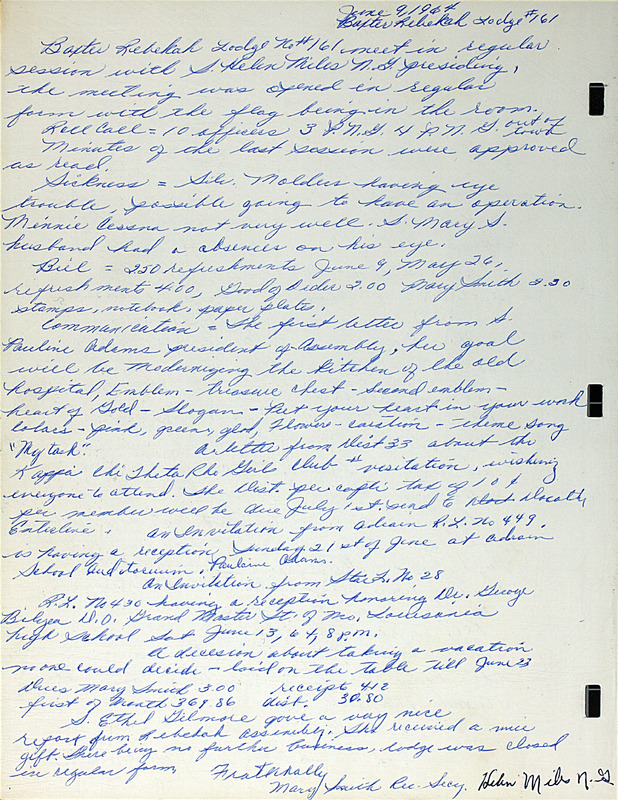 June 9, 1964
Baxter Rebekah Lodge #161
Baxter Rebekah Lodge No# 161 meet in regular
session with S. Helen Miles N.G presiding,
the meeting was opened in regular
form with the flag being in the room.
Roll Call = 10 officers 3 P.N.G. 4 P.N.G. out of town
Minutes of the last session were approved
as read.
Sickness = Silv. Molders having eye
trouble, possible going to have an operation.
Minnie Cessna not very well. S. Mary S.
husband had a absences on his eye.
Bill = 2.50 refreshments June 9, May 26,
refreshments 4.00, Good of Order 2.00 Mary Smith 3.30
stamps, notebook, paper plates,
Communication = The first letter from S.
Pauline Adams president of Assembly, her goal
will be Modernizing the kitchen of the old
hospital, Emblem - treasure chest - second emblem -
heart of Gold - Slogan - Put your heart in your work
Colors - pink, green, gold, Flower - carition - Theme song
"My task". A letter from Dist 33 about the
Kappi Chi Theta Rho Girls Club # visitation, wishing
everyone to attend. The Dist. per capti tax of 10¢
per member will be due July 1st. send to
an Invitation from Adrain R.L. No 449,
is having a reception, Sunday 21st of June at Adrain
School Auditorium. Pauline Adams.
An Invitation from Star L. No 28
R.L. No 430 having a reception honoring Dr. George
D.D. Grand Master St. of Mo. Louisania
high School Sat June 13, 64, 8 p.m.
A decesion about taking a vacation
no one could decide - laid on the table till June 23
Dues Mary Smith 3.00 receipt 412
first of Month 369.86 dist. 30.80
S. Ethel Gilmore gave a very nice
report from Rebekah Assembly. She received a nice
gift. There being no further business, lodge was closed
in regular form. Fraternally
Mary Smith Rec. Secy. Helen Miles N.G